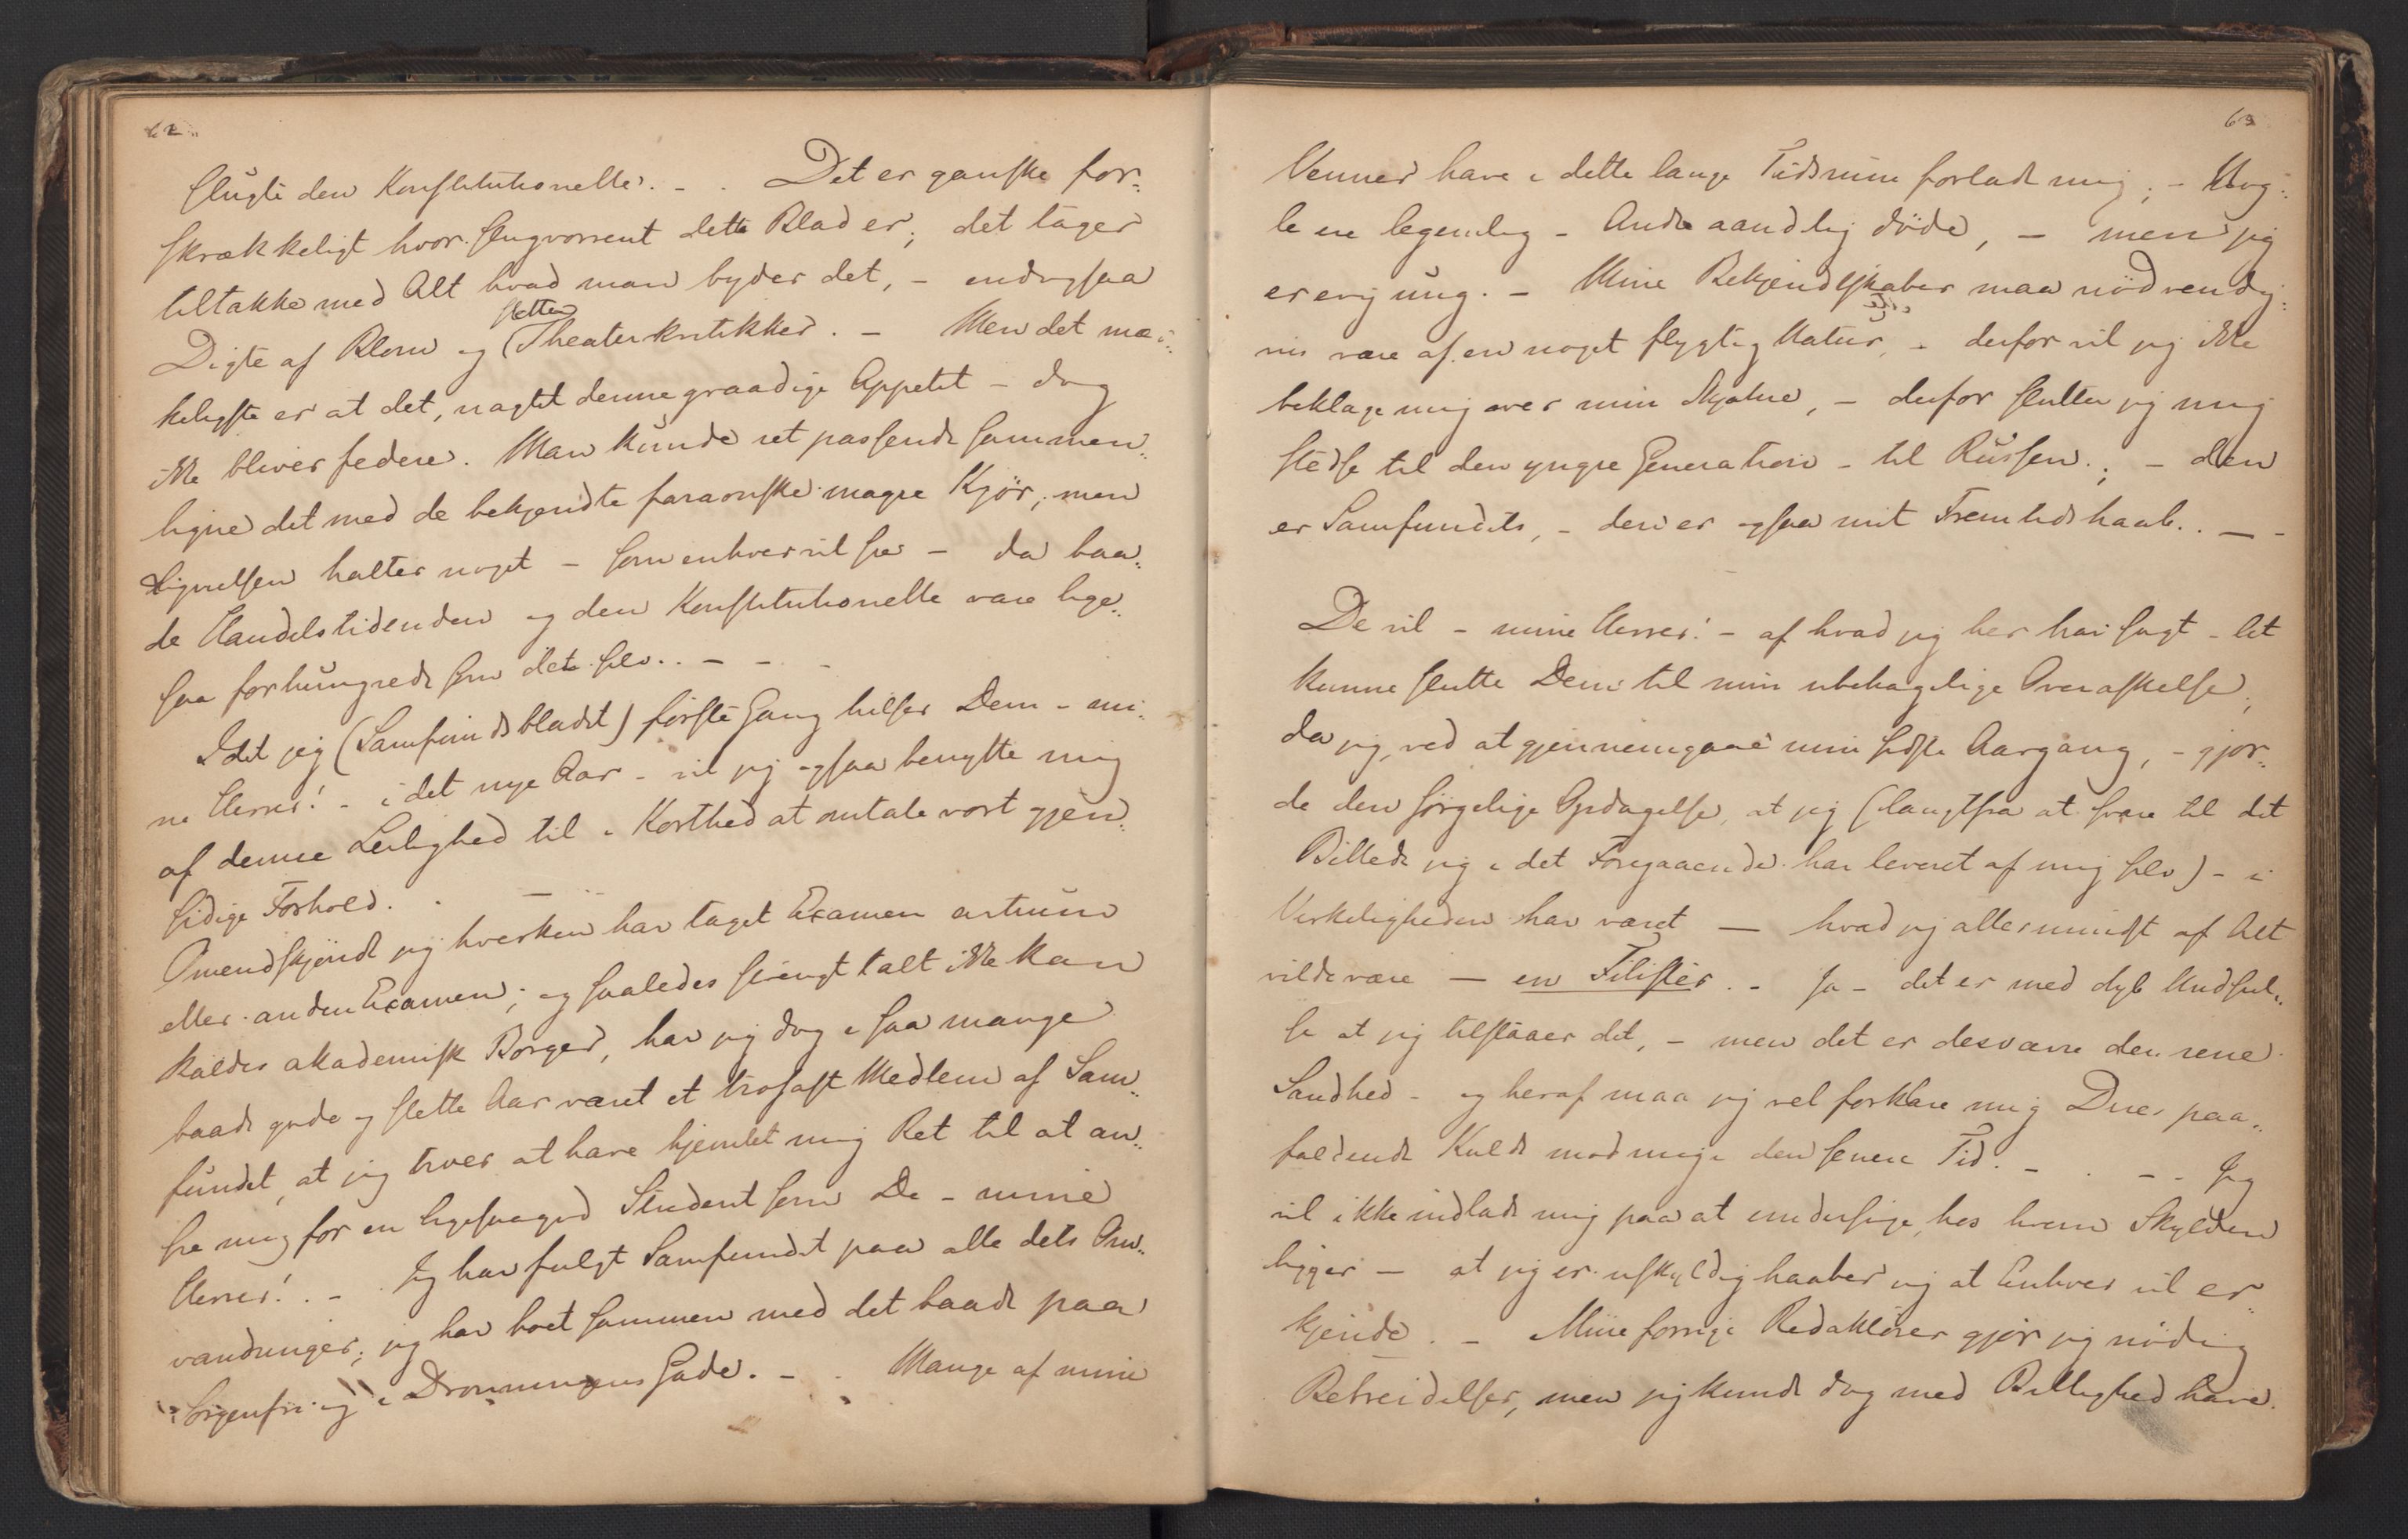 62
slugte den Konstitutionelle. - . Det er ganske for-
skrækkeligt hvor slugvorrent dette Blad er; det tager
tiltakke med Alt hvad man byder det, - endogsaa
Digte af Blom og slette Theaterkritikker. - Men det mær-
keligste er at det, uagtet denne graadige Appetit - dog
ikke bliver federe. Man kunde ret passende sammen-
ligne det med de bekjendte faraonske magre Kjør; men
Lignelsen halter noget - som enhver vil see - da baa-
de Handelstidenden og den Konstitutionelle vare lige-
saa forhungrede som det selv. - - -
Idet jeg (Samfundsbladet) første Gang hilser Dem - mi-
ne Herrer! - i det nye Aar - vil jeg ogsaa benytte mig
af denne Leilighed til i Korthed at omtale vort gjen-
sidige Forhold. . -
Omendskjøndt jeg hverken har taget Examen artium
eller anden Examen; og saaledes strengt talt ikke kan
kaldes akademisk Borger, har jeg dog i saa mange
baade gode og slette Aar været et trofast Medlem af Sam-
fundet, at jeg troer at have hjemlet mig Ret til at an-
see mig for en ligesaagod Student som De - mine
Herrer! . - Jeg har fulgt Samfundet paa alle dets Om-
vandringer; jeg har boet sammen med det baade paa
"Sorgenfri" og i Dronningens Gade. - . Mange af mine
63
Venner have i dette lange Tidsrum forladt mig; - Nog-
le ere legemlig - Andre aandlig døde, - men jeg
er evig ung. - Mine Bekjendtskaber maa nødvendig-
vis være af en noget flygtig Natur, - derfor vil jeg ikke
beklage mig over min Skjæbne, - derfor slutter jeg mig
stedse til den yngre Generation - til Russen; - den
er Samfundets, - den er ogsaa mit Fremtidshaab. . - -
De vil - mine Herrer! - af hvad jeg her har sagt - let
kunne slutte Dem til min ubehagelige Overraskelse,
da jeg, ved at gjennemgaae min sidste Aargang, - gjor-
de den sørgelige Opdagelse, at jeg (langtfra at svare til det
Billede jeg i det Foregaaende har leveret af mig selv) - i
Virkeligheden har været - hvad jeg allermindst af Alt
vilde være - en Filister. - Ja - det er med dyb Undseel-
se at jeg tilstaaer det, - men det er desværre den rene
Sandhed - og heraf maa jeg vel forklare mig Deres paa-
faldende Kulde mod mig i den senere Tid. - . - - Jeg
vil ikke indlade mig paa at undersøge, hos hvem Skylden
ligger - at jeg er uskyldig haaber jeg at Enhver vil er-
kjende. - Mine forrige Redaktører gjør jeg nødig
Bebreidelser, men jeg kunde dog med Billighed have